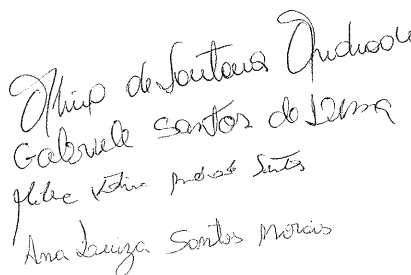 de Santana Andrade
Gabriele Santos de Lessa
Andrade Santos
Ana Luiza Santos Morais